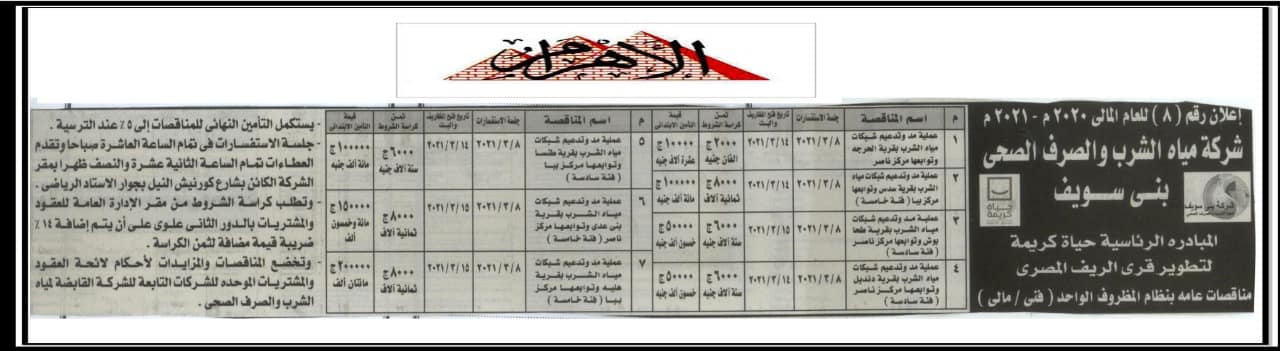 الأهرام
إعلان رقم ( ٨ ) للعام المالى ٢٠٢٠ م - ٢٠٢١ م
شركة مياه الشرب والصرف الصحى
بنى سويف
شركة بنى سويف
حياة كريمة
المبادره الرئاسية حياة كريمة
لتطوير قرى الريف المصرى
مناقصات عامه بنظام المظروف الواحد ( فنى / مالى )
م | اسم المناقصة | جلسة الاستفسارات | تاريخ فتح المظاريف والبت | ثمن كراسة الشروط | قيمة التأمين الابتدائى
١ | عملية مد وتدعيم شبكات مياه الشرب بقرية الحرجه وتوابعها مركز ناصر | ٢٠٢١/٣/٨ | ٢٠٢١/٣/١٤ | ٢٠٠٠ج الفان جنيه | ١٠٠٠٠ج عشرة آلاف جنيه
٢ | عملية مد وتدعيم شبكات مياه الشرب بقرية سدس وتوابعها مركز ببا ( فئة خامسة ) | ٢٠٢١/٣/٨ | ٢٠٢١/٣/١٤ | ٨٠٠٠ج ثمانية آلاف | ١٠٠٠٠٠ج مائة ألف جنيه
٣ | عملية مد وتدعيم شبكات مياه الشرب بقرية طحا بوش وتوابعها مركز ناصر ( فئة سادسة ) | ٢٠٢١/٣/٨ | ٢٠٢١/٣/١٥ | ٦٠٠٠ج ستة آلاف جنيه | ٥٠٠٠٠ج خمسون ألف جنيه
٤ | عملية مد وتدعيم شبكات مياه الشرب بقرية دنديل وتوابعها مركز ناصر ( فئة سادسة ) | ٢٠٢١/٣/٨ | ٢٠٢١/٣/١٤ | ٦٠٠٠ج ستة آلاف جنيه | ٥٠٠٠٠ج خمسون ألف جنيه
م | اسم المناقصة | جلسة الاستفسارات | تاريخ فتح المظاريف والبت | ثمن كراسة الشروط | قيمة التأمين الابتدائى
٥ | عملية مد وتدعيم شبكات مياه الشرب بقرية طنسا وتوابعها مركز ببا ( فئة سادسة ) | ٢٠٢١/٣/٨ | ٢٠٢١/٣/١٤ | ٦٠٠٠ج ستة آلاف جنيه | ١٠٠٠٠٠ج مائة ألف جنيه
٦ | عملية مد وتدعيم شبكات مياه الشرب بقرية بنى عدى وتوابعها مركز ناصر ( فئة خامسة ) | ٢٠٢١/٣/٨ | ٢٠٢١/٣/١٥ | ٨٠٠٠ج ثمانية آلاف | ١٥٠٠٠٠ج مائة وخمسون ألف
٧ | عملية مد وتدعيم شبكات مياه الشرب بقرية هليه وتوابعها مركز ببا ( فئة خامسة ) | ٢٠٢١/٣/٨ | ٢٠٢١/٣/١٥ | ٨٠٠٠ج ثمانية آلاف | ٢٠٠٠٠٠ج مائتان ألف
- يستكمل التأمين النهائى للمناقصات إلى ٥٪ عند الترسية .
- جلسة الاستفسارات فى تمام الساعة العاشرة صباحا وتقدم
العطاءات تمام الساعة الثانية عشرة والنصف ظهرا بمقر
الشركة الكائن بشارع كورنيش النيل بجوار الاستاد الرياضى .
- وتطلب كراسة الشروط من مقر الإدارة العامة للعقود
والمشتريات بالدور الثانى علوى على أن يتم إضافة ١٤٪
ضريبة قيمة مضافة لثمن الكراسة .
- وتخضع المناقصات والمزايدات لأحكام لائحة العقود
والمشتريات الموحده للشركات التابعة للشركة القابضة لمياه
الشرب والصرف الصحى .